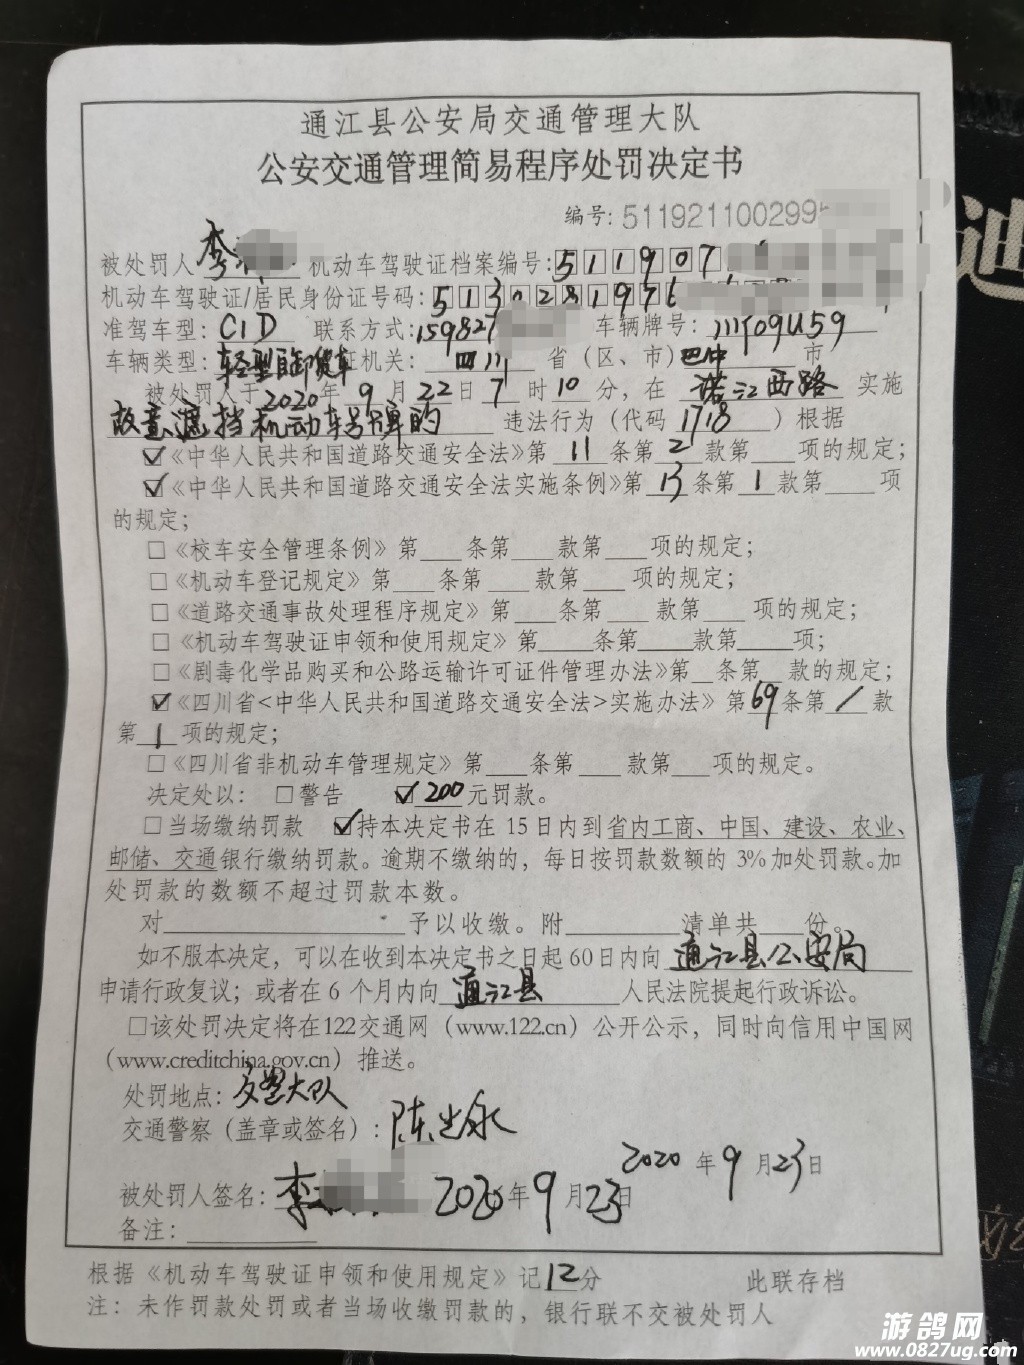 通江县公安局交通管理大队
公安交通管理简易程序处罚决定书
编号: 511921100299
被处罚人 李 机动车驾驶证档案编号: 511907
机动车驾驶证/居民身份证号码: 513028197
准驾车型: C1D 联系方式: 159827 车辆牌号: 川Y09U59
车辆类型: 轻型自卸货车 证机关: 四川 省（区、市）巴中 市
被处罚人于 2020 年 9 月 22 日 7 时 10 分，在 诺江西路 实施
故意遮挡机动车号牌的 违法行为（代码 1718 ）根据
☑《中华人民共和国道路交通安全法》第 11 条第 2 款第___项的规定；
☑《中华人民共和国道路交通安全法实施条例》第 13 条第 1 款第___项
的规定；
□《校车安全管理条例》第___条第___款第___项的规定；
□《机动车登记规定》第___条第___款第___项的规定；
□《道路交通事故处理程序规定》第___条第___款第___项的规定；
□《机动车驾驶证申领和使用规定》第____条第____款第____项；
□《剧毒化学品购买和公路运输许可证件管理办法》第_条第_款的规定；
☑《四川省<中华人民共和国道路交通安全法>实施办法》第 69 条第 / 款
第 1 项的规定；
□《四川省非机动车管理规定》第___条第___款第___项的规定。
决定处以: □警告 ☑ 200 元罚款。
□当场缴纳罚款 ☑持本决定书在 15 日内到省内工商、中国、建设、农业、
邮储、交通银行缴纳罚款。逾期不缴纳的，每日按罚款数额的 3%加处罚款。加
处罚款的数额不超过罚款本数。
对____________________予以收缴。附__________清单共___份。
如不服本决定，可以在收到本决定书之日起 60 日内向 通江县公安局
申请行政复议；或者在 6 个月内向 通江县 人民法院提起行政诉讼。
□该处罚决定将在122交通网（www.122.cn）公开公示，同时向信用中国网
（www.creditchina.gov.cn）推送。
处罚地点: 交警大队
交通警察（盖章或签名）: 陈
2020 年 9 月 23 日
被处罚人签名: 李 2020 年 9 月 23 日
备注: __________
根据《机动车驾驶证申领和使用规定》记 12 分 此联存档
注: 未作罚款处罚或者当场收缴罚款的，银行联不交被处罚人
迪
游鸽网
www.0827ug.com